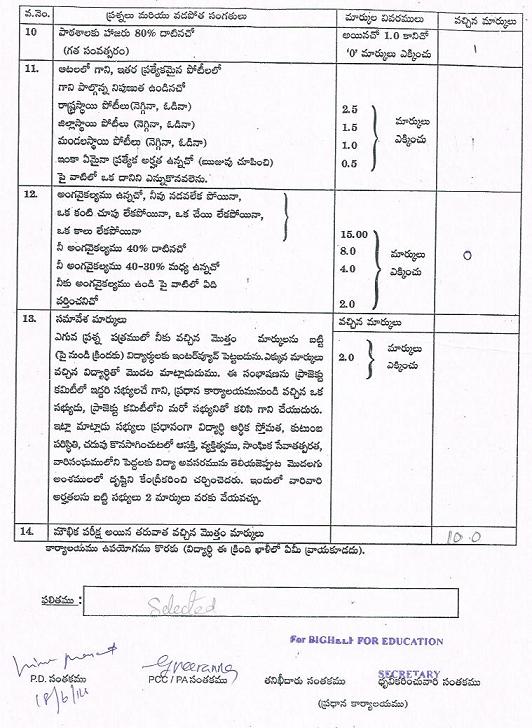 వ.నెం. ప్రశ్నలు మరియు వడపోత సంగతులు మార్కుల వివరములు వచ్చిన మార్కులు
10 పాఠశాలకు హాజరు 80% దాటినచో అయినచో 1.0 కానిచో
(గత సంవత్సరం) '0' మార్కులు ఎక్కించు 1
11. ఆటలలో గాని, ఇతర ప్రత్యేకమైన పోటీలలో
గాని పాల్గొన్న నిపుణుత ఉండినచో
రాష్ట్రస్థాయి పోటీలు (నెగ్గినా, ఓడినా) 2.5
జిల్లాస్థాయి పోటీలు (నెగ్గినా, ఓడినా) 1.5 మార్కులు
మండలస్థాయి పోటీలు (నెగ్గినా, ఓడినా) 1.0 ఎక్కించు
ఇంకా ఏమైనా ప్రత్యేక అర్హత ఉన్నచో (ఋజువు చూపించి) 0.5
పై వాటిలో ఒక దానిని ఎన్నుకొనవలెను.
12. అంగవైకల్యము ఉన్నచో, నీవు నడవలేక పోయినా,
ఒక కంటి చూపు లేకపోయినా, ఒక చేయి లేకపోయినా,
ఒక కాలు లేకపోయినా 15.00
నీ అంగవైకల్యము 40% దాటినచో 8.0 మార్కులు 0
నీ అంగవైకల్యము 40-30% మధ్య ఉన్నచో 4.0 ఎక్కించు
నీకు అంగవైకల్యము ఉండి పై వాటిలో ఏది
వర్తించనిచో 2.0
13. సమావేశ మార్కులు వచ్చిన మార్కులు
ఎగువ ప్రశ్న పత్రములో నీకు వచ్చిన మొత్తం మార్కులను బట్టి
(పై నుండి క్రిందకు) విద్యార్థులకు ఇంటర్వ్యూవ్ పెట్టబడును. ఎక్కువ మార్కులు 2.0 మార్కులు
వచ్చిన విద్యార్థితో మొదట మాట్లాడుదుము. ఈ సంభాషణను ప్రాజెక్టు ఎక్కించు
కమిటీలో ఇద్దరి సభ్యులచే గాని, ప్రధాన కార్యాలయమునుండి వచ్చిన ఒక
సభ్యుడు, ప్రాజెక్టు కమిటీలోని మరో సభ్యునితో కలిసి గాని చేయుదురు.
ఇట్లా మాట్లాడు సభ్యులు ప్రధానంగా విద్యార్థి ఆర్థిక స్తోమత, కుటుంబ
పరిస్థితి, చదువు కొనసాగించుటలో ఆసక్తి, వ్యక్తిత్వము, సాంఘిక సేవాతత్పరత,
వారిసంఘములోని పెద్దలకు విద్యా అవసరమును తెలియజెప్పుట మొదలగు
అంశములలో దృష్టిని కేంద్రీకరించి చర్చించెదరు. ఇందులో వారివారి
అర్హతలను బట్టి సభ్యులు 2 మార్కులు వరకు వేయవచ్చు.
14. మౌఖిక పరీక్ష అయిన తరువాత వచ్చిన మొత్తం మార్కులు 10.0
కార్యాలయము ఉపయోగము కొరకు (విద్యార్థి ఈ క్రింది ఖాళీలో ఏమీ వ్రాయకూడదు).
ఫలితము : Selected
For BIGHELP FOR EDUCATION
SECRETARY
P.D. సంతకము PCC / PA సంతకము తనిఖీదారు సంతకము ధృవీకరించువారి సంతకము
18/6/14 (ప్రధాన కార్యాలయము)